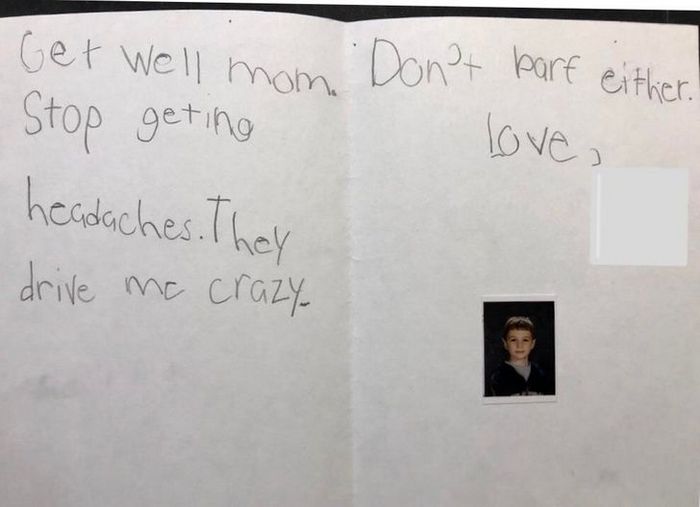 Get well mom.
Stop geting
headaches. They
drive me crazy.
Don't barf either.
Love,